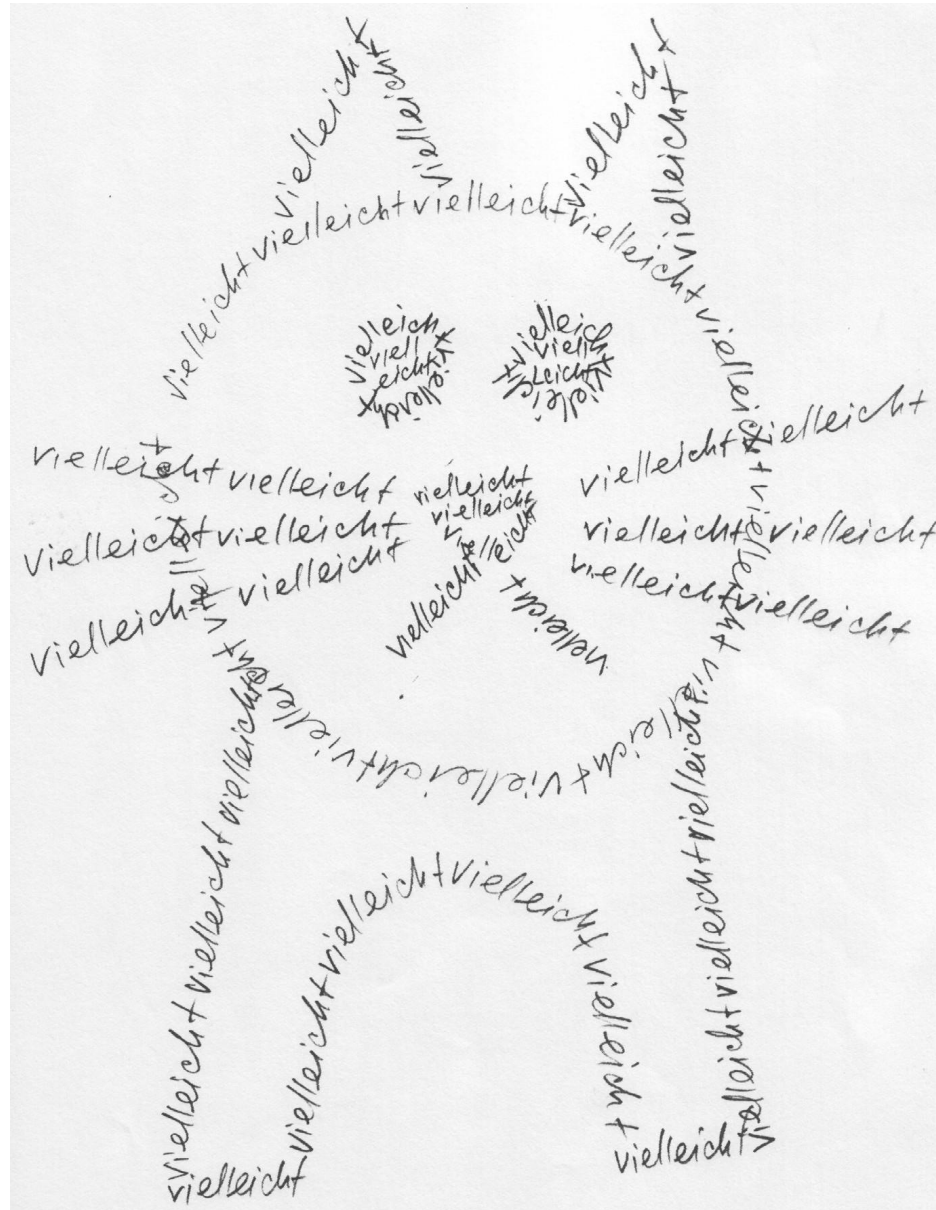 vielleicht
vielleicht
vielleicht
vielleicht
vielleicht vielleicht vielleicht vielleicht vielleicht vielleicht
vielleich
viell
eicht
vielleicht
vielleich
viell
eicht
vielleicht
vielleicht vielleicht
vielleicht vielleicht
vielleicht vielleicht
vielleicht vielleicht
vielleicht vielleicht
vielleicht vielleicht
vielleicht
vielleicht
vielleicht
vielleicht
vielleicht
vielleicht
vielleicht vielleicht vielleicht
vielleicht vielleicht vielleicht
vielleicht vielleicht vielleicht vielleicht
vielleicht vielleicht vielleicht
vielleicht
vielleicht